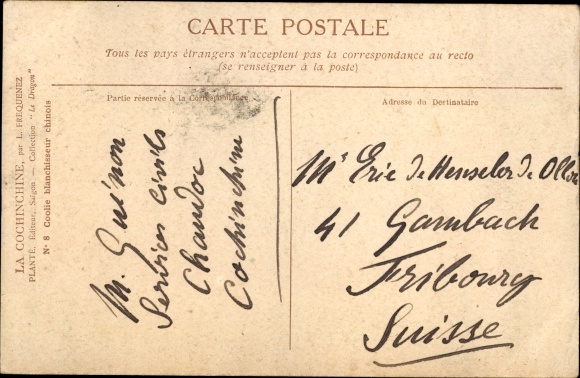 CARTE POSTALE
Tous les pays étrangers n'acceptent pas la correspondance au recto
(se renseigner à la poste)
Partie réservée à la Correspondance
Adresse du Destinataire
LA COCHINCHINE, par L. FREQUENEZ
PLANTÉ, Éditeur, Saïgon — Collection "Le Dragon"
N° 8 Coolie blanchisseur chinois
M. Guénon
Services Civils
Chaudoc
Cochinchine
Mr Eric de Henseler de
41 Gambach
Fribourg
Suisse